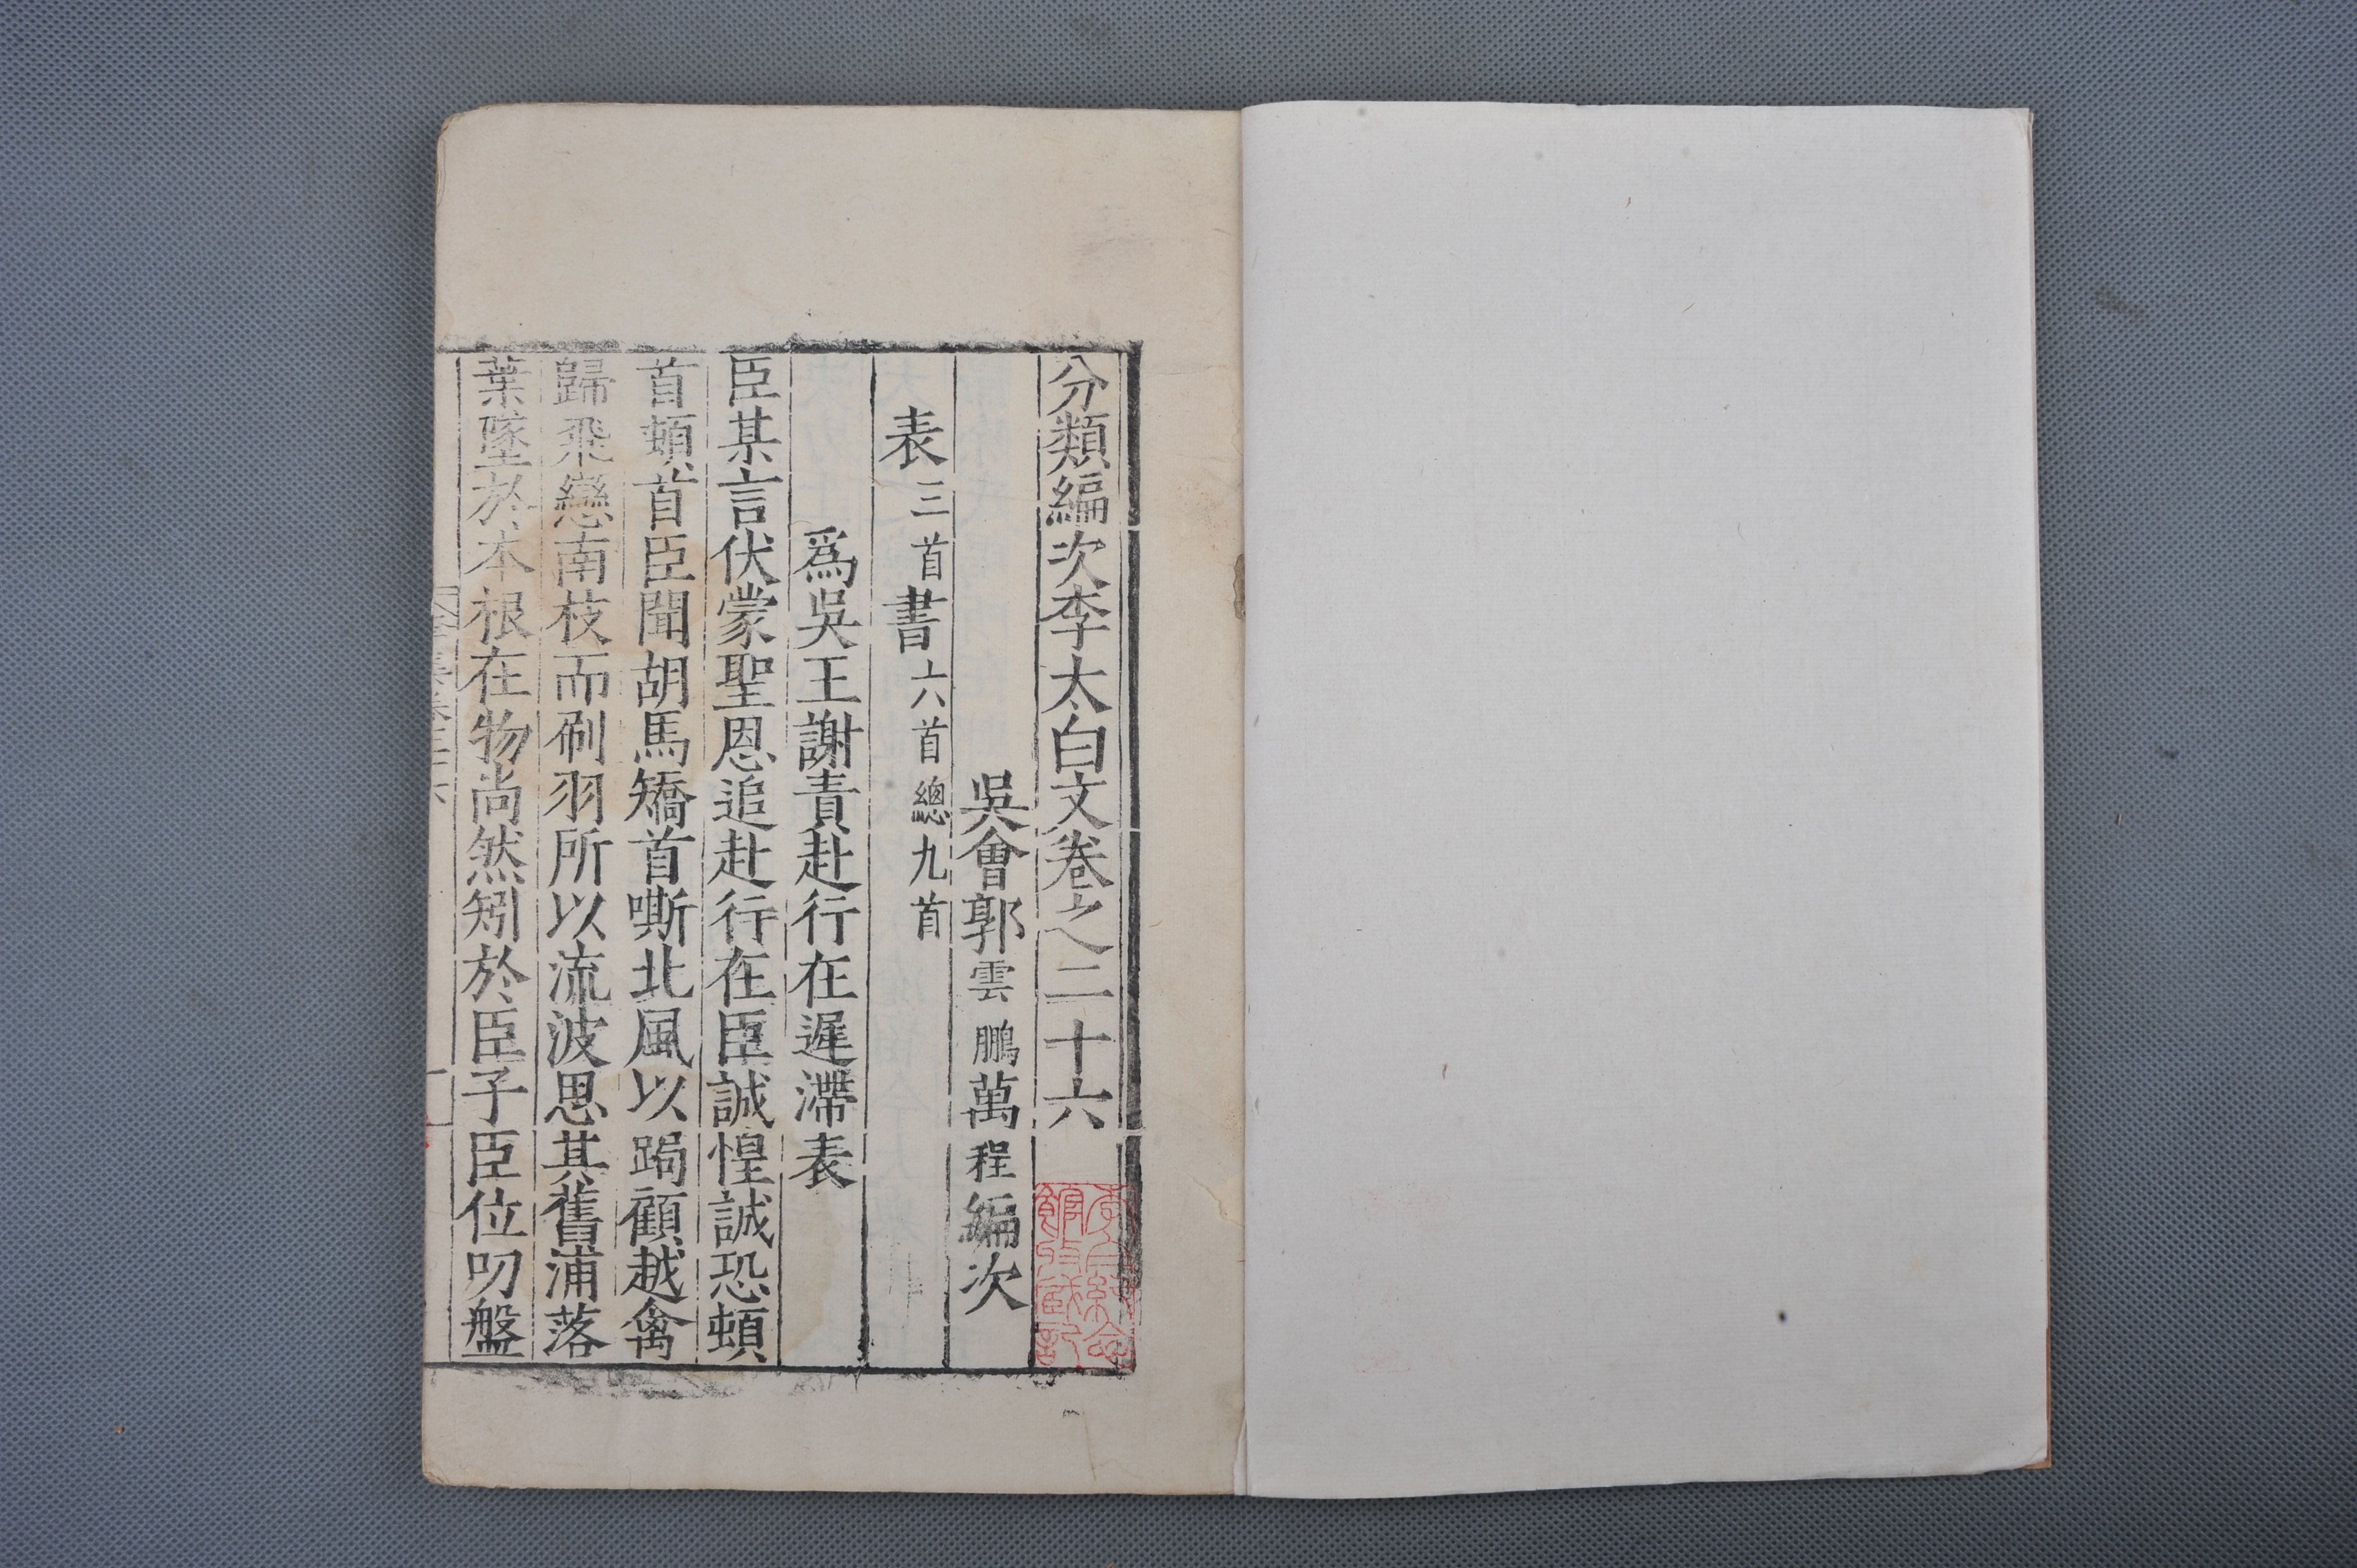 分類編次李太白文卷之二十六
吳會郭雲鵬萬程編次
表三首書六首總九首
爲吳王謝責赴行在遲滯表
臣某言伏蒙聖恩追赴行在臣誠惶誠恐頓
首頓首臣聞胡馬矯首嘶北風以跼顧越禽
歸飛戀南枝而刷羽所以流波思其舊浦落
葉墜於本根在物尚然矧於臣子臣位叨盤
李白紀念
館收藏記